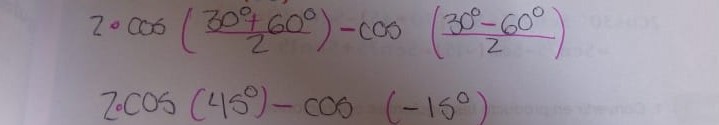 2•cos (30°+60°/2) - cos (30°-60°/2)
2•cos (45°) - cos (-15°)